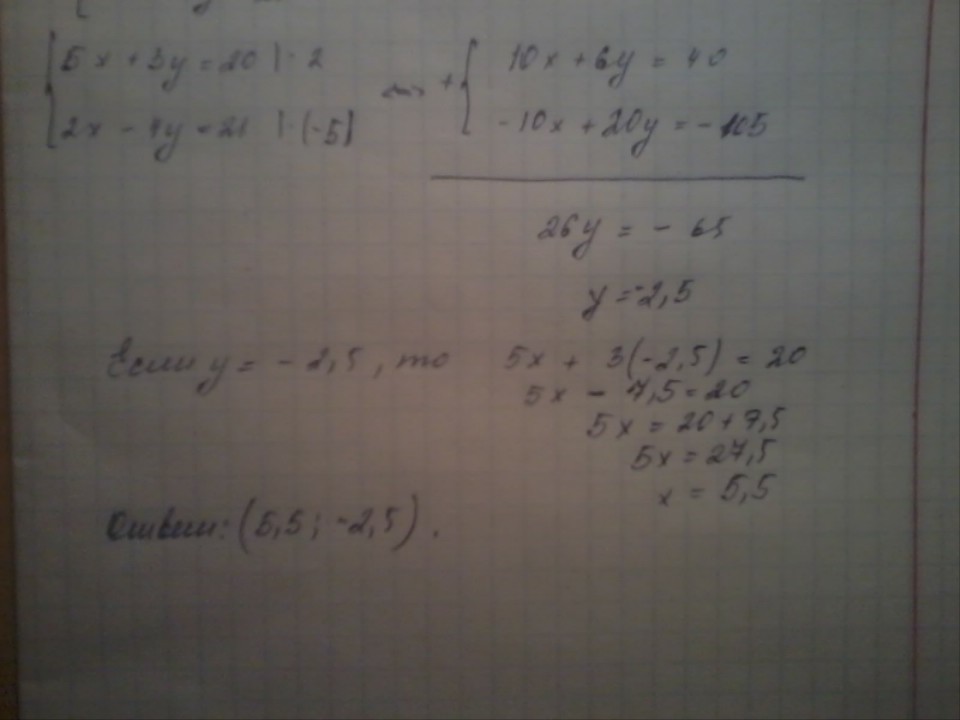 5x + 3y = 20 | · 2
2x - 4y = 21 | · (-5)
<=> + { 10x + 6y = 40
-10x + 20y = -105
26y = - 65
y = -2,5
Если y = - 2,5, то 5x + 3(-2,5) = 20
5x - 7,5 = 20
5x = 20 + 7,5
5x = 27,5
x = 5,5
Ответ: (5,5; -2,5).